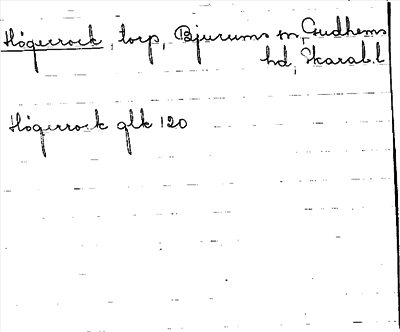 Högerrock, torp, Bjurums sn, Gudhems
hd, Skarab.l
Högerrock glk 120